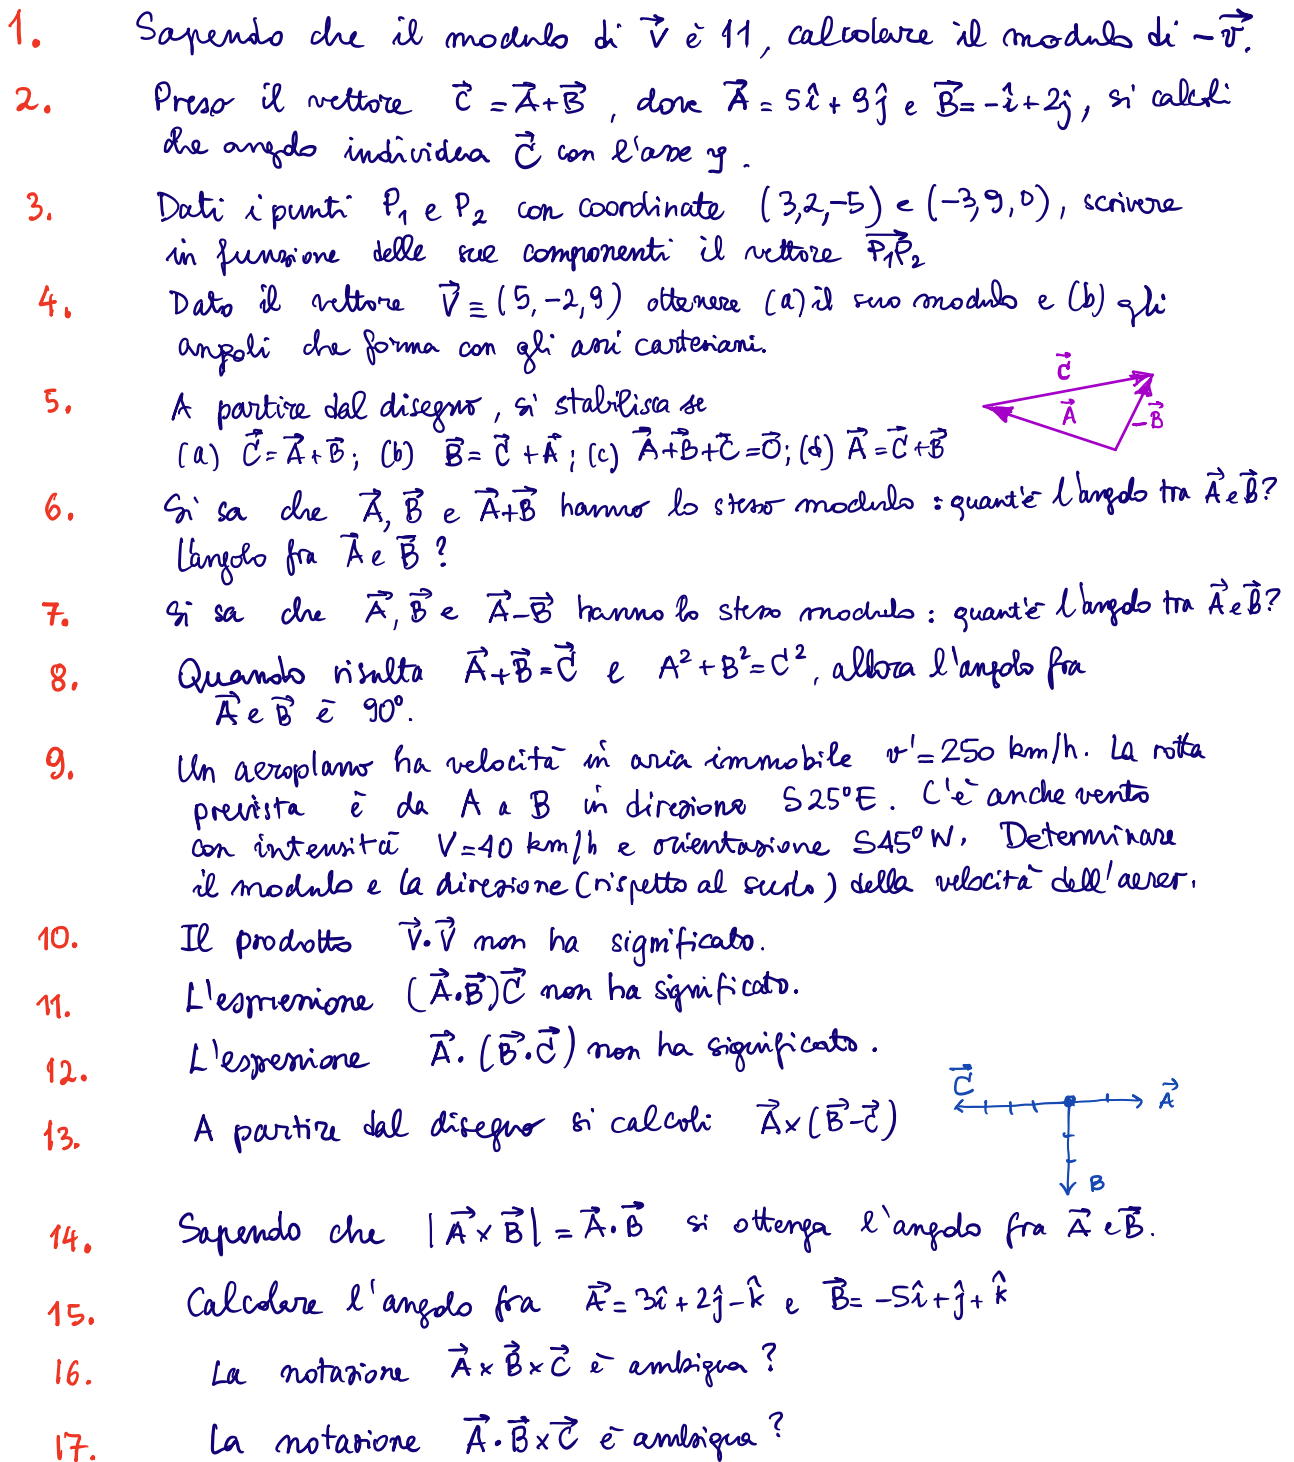 1. Sapendo che il modulo di v⃗ è 11, calcolare il modulo di −v⃗.
2. Preso il vettore C⃗ = A⃗+B⃗, dove A⃗ = 5î + 9ĵ e B⃗ = −î + 2ĵ, si calcoli
che angolo individua C⃗ con l'asse y.
3. Dati i punti P₁ e P₂ con coordinate (3,2,−5) e (−3,9,0), scrivere
in funzione delle sue componenti il vettore P₁P₂⃗
4. Dato il vettore V⃗ ≡ (5,−2,9) ottenere (a) il suo modulo e (b) gli
angoli che forma con gli assi cartesiani.
5. A partire dal disegno, si stabilisca se
(a) C⃗ = A⃗+B⃗; (b) B⃗ = C⃗ + A⃗; (c) A⃗+B⃗+C⃗ = 0⃗; (d) A⃗ = C⃗+B⃗
C⃗
A⃗
−B⃗
6. Si sa che A⃗, B⃗ e A⃗+B⃗ hanno lo stesso modulo: quant'è l'angolo tra A⃗ e B⃗?
L'angolo fra A⃗ e B⃗?
7. Si sa che A⃗, B⃗ e A⃗−B⃗ hanno lo stesso modulo: quant'è l'angolo tra A⃗ e B⃗?
8. Quando risulta A⃗+B⃗=C⃗ e A²+B²=C², allora l'angolo fra
A⃗ e B⃗ è 90°.
9. Un aeroplano ha velocità in aria immobile v'=250 km/h. La rotta
prevista è da A a B in direzione S25°E. C'è anche vento
con intensità V=40 km/h e orientazione S45°W. Determinare
il modulo e la direzione (rispetto al suolo) della velocità dell'aereo.
10. Il prodotto V⃗·V⃗ non ha significato.
11. L'espressione (A⃗·B⃗)C⃗ non ha significato.
12. L'espressione A⃗·(B⃗·C⃗) non ha significato.
13. A partire dal disegno si calcoli A⃗×(B⃗−C⃗)
C⃗
A⃗
B
14. Sapendo che |A⃗×B⃗| = A⃗·B⃗ si ottenga l'angolo fra A⃗ e B⃗.
15. Calcolare l'angolo fra A⃗ = 3î + 2ĵ − k̂ e B⃗ = −5î + ĵ + k̂
16. La notazione A⃗×B⃗×C⃗ è ambigua?
17. La notazione A⃗·B⃗×C⃗ è ambigua?